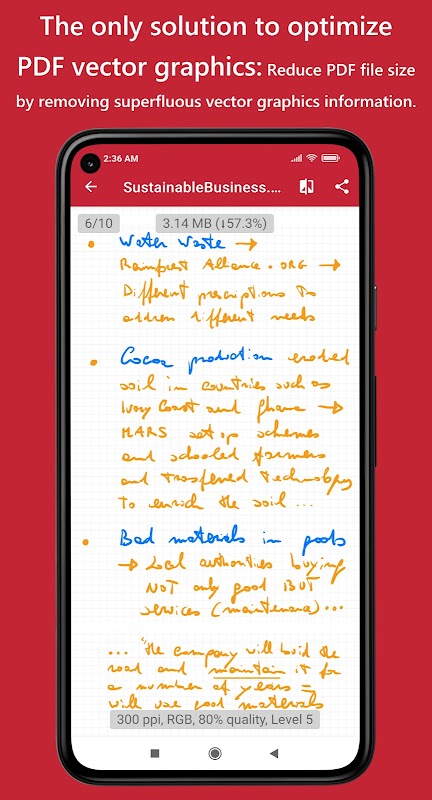 The only solution to optimize
PDF vector graphics: Reduce PDF file size
by removing superfluous vector graphics information.
2:36 AM
SustainableBusiness....
6/10
3.14 MB (↓57.3%)
• Water Waste →
Rainforest Alliance.ORG →
Different prescriptions to
address different needs
• Cocoa production eroded
soil in countries such as
Ivory Coast and Ghana →
MARS set up schemes
and schooled farmers
and trasfered technology
to enrich the soil ...
• Bad materials in pools
→ Local authorities buying
NOT only good BUT
services (maintenance) ...
... "the company will buid the
road and maintain it for
a number of years =
will use good materials
300 ppi, RGB, 80% quality, Level 5